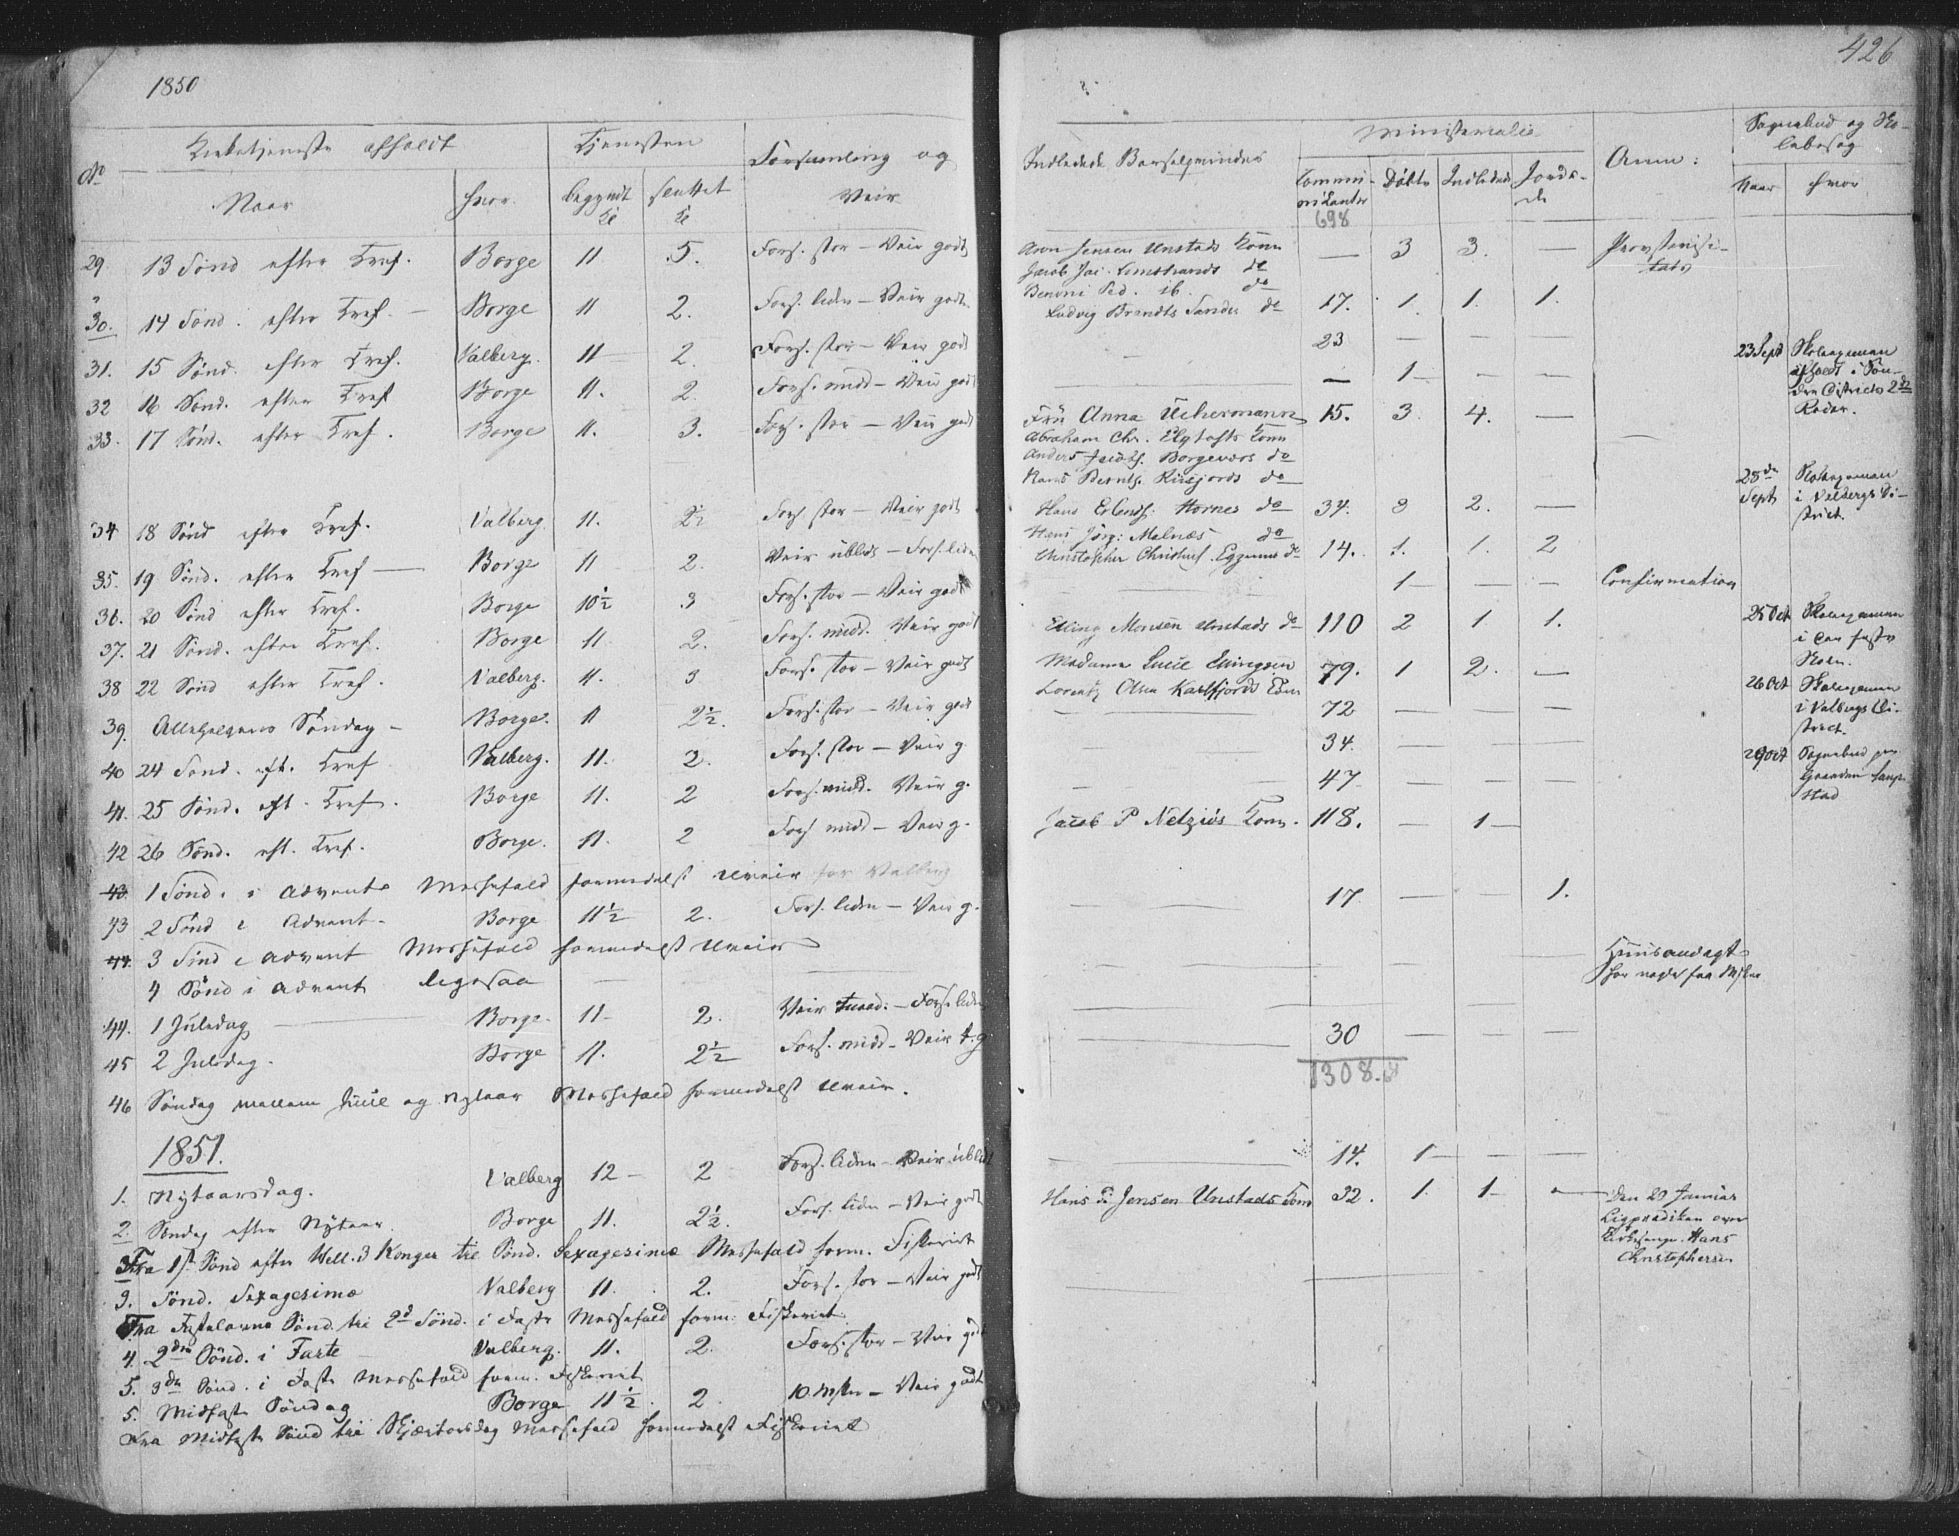 1850
426
No
Kirketjeneste afholdt
Tjenesten
Forsamling og
Naar
hvor.
begyndt Kl
sluttet Kl
Veir
29. 13 Sønd efter Tref. Borge 11 5. Fors. stor – Veir godt
30. 14 Sønd. efter Tref. – Borge 11 2. Fors. liden – Veir godt
31. 15 Sønd. efter Tref. Valberg. 11 2. Fors. stor – Veir godt
32 16 Sønd. efter Tref Borge 11. 2. Fors. midd – Veir godt
33. 17 Sønd. efter Tref. Borge 11. 3. Fors. stor – Veir godt
34 18 Sønd efter Tref. Valberg. 11. 2½ Fors. stor – Veir godt
35. 19 Sønd. efter Tref — Borge 11 2. Veir ublids – Fors. liden
36. 20 Sønd efter Tref. Borge 10½ 3 Fors. stor – Veir godt
37. 21 Sønd. efter Tref. Borge 11. 2. Fors. midd. Veir godt
38 22 Sønd efter Tref. Valberg. 11. 3 Fors. stor – Veir godt
39. Allehelgens Søndag – Borge. 11 2½. Fors. stor – Veir godt
40 24 Sønd. eft. Tref Valberg. 11. 2. Fors. stor – Veir g.
41. 25 Sønd. eft. Tref. Borge 11. 2 Fors. midd. Veir g.
42 26 Sønd. eft. Tref. Borge. 11. 2 Fors midd – Veir g.
43. 1 Sønd. i Advent Messefald formedelst Uveir for Valberg
43 2 Sønd i Advent. Borge 11½ 2. Fors. liden – Veir g.
44. 3 Sønd i Advent Messefald formedelst Uveir
4 Sønd i Advent ligesaa
44. 1 Juledag — Borge. 11 – 2. Veir – Fors. liden
45 2 Juledag. Borge 11. 2½ Fors. midd – Veir t. g
46 Søndag mellem Juul og Nytaar Messefald formedelst Uveir.
1851.
1. Nytaarsdag. Valberg 12 – 2 Fors. liden – Veir ublidt
2. Søndag efter Nytaar. Borge 11. 2½. Fors. liden – Veir godt
Fra 1st Sønd efter Hell. 3 Konger til Sønd. Sexagesimæ Messefald form. Fiskeriet
3. Sønd. Sexagesimæ Valberg 11. 2. Fors. stor – Veir godt
Fra Fastelavns Sønd. til 2d Sønd. i Faste Messefald form: Fiskeriet
4. 2den Sønd. i Faste Valberg. 11. 2. Fors. stor – Veir godt
5. 3de Sønd. i Faste Messefald form. Fiskeriet
5. Midfaste Søndag Borge 11½. 2. 10 Msker – Veir godt
Fra Midfaste Sønd til Skjærtorsdag Messefald formedelst Fiskeriet
Indledede Barselqvinder
Ministerialie
Anm:
Sognebud og Skolebesøg
Communicanter
Døbte
Indledede
Jordede
Naar
hvor
698
Arn Jensen Unstads Kone — 3 3. —
Jacob Jac. Limstrands do
Benoni Ped. ib. do
Ludvig Brandts Sandes do 17. 1. 1. 1.
23 — — —
— 1 — —
Fru Anna Uchermann 15. 3. 4. —
Abraham Chr. Elgtofts Kone
Anders Jacobs. Borgevers do
Hans Bernts. Risfjords do
Hans Erlends. Hornes do 34. 3 2. —
Hans Jørg: Malnæs do
Christopher Christens. Eggums do 14. 1. 1. 2
1 — — Confirmation
Elling Monsen Unstads do 110 2 1 1.
Madame Lucie Ellingsen 79. 1 2. —
Lorentz Olsen Karlfjords Kone
72 — — —
34. — — —
47 — — —
Jacob P Netziös Kone. 118. — 1 —
17. — — 1.
Huusandagt
for nogle faa Msker
30
1308.
14. 1 — —
Hans P. Jensen Unstads Kone 32. 1. 1 — —
Den 29 Januar
Ligprædiken over
Kirkesanger Hans
Christophersen
23 Sept
Skoleexamen
afholdt i Søndre Districts 2de
Roder.
25de
Sept
Skoleexamen
i Valbergs District.
25 Oct
Skoleexamen
i den faste
Skole.
26 Oct
Skoleexamen
i Valbergs District.
29 Oct
Sognebud paa
Gaarden